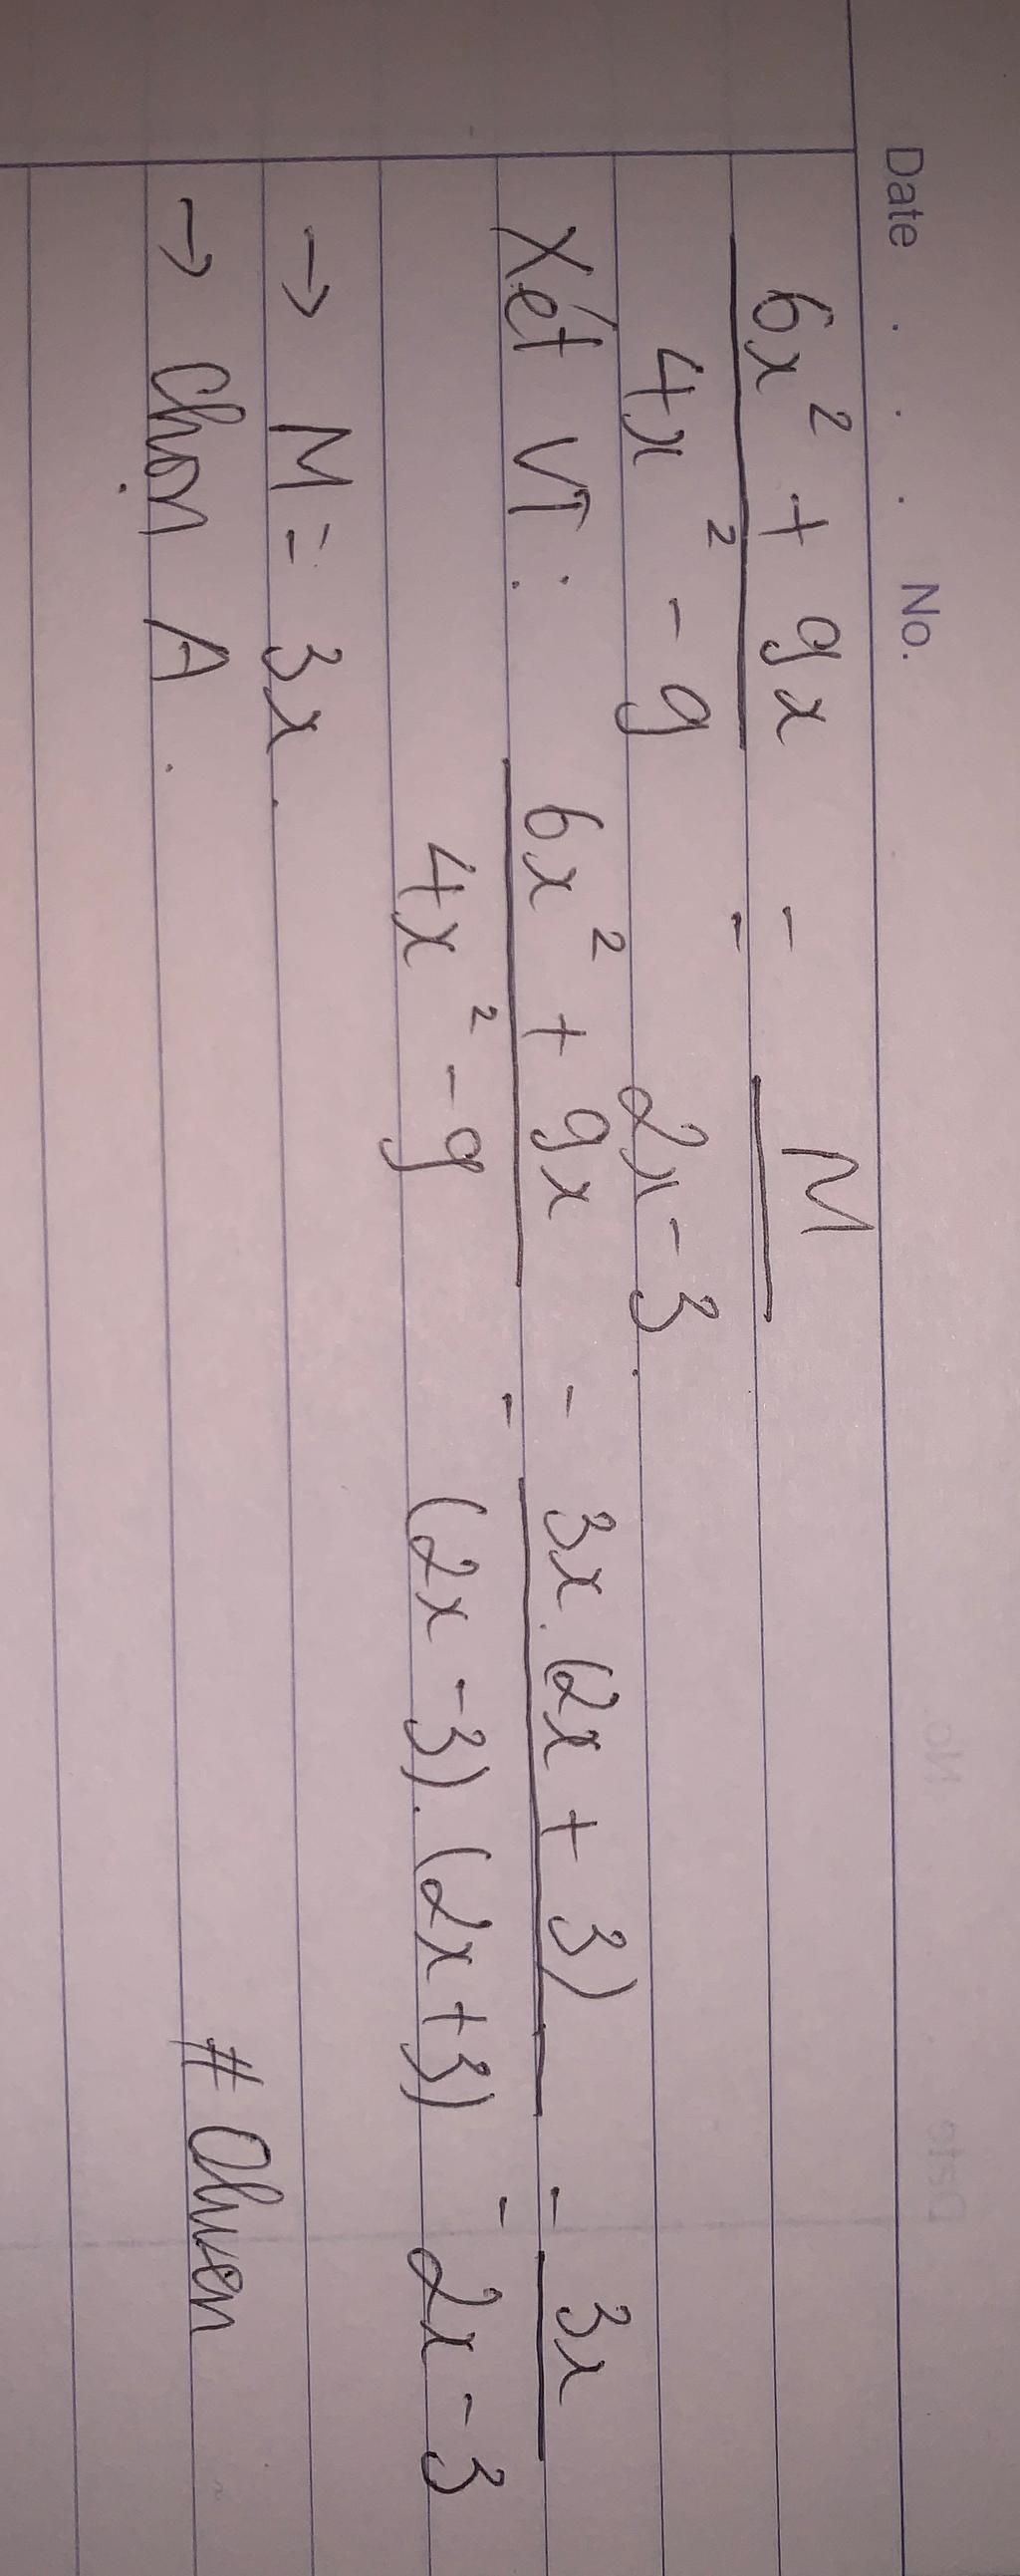 Date . . . No.
6x² + 9x / 4x² - 9 = M / 2x - 3.
Xét VT: 6x² + 9x / 4x² - 9 = 3x.(2x + 3) / (2x - 3).(2x+3) = 3x / 2x - 3
→ M = 3x.
→ Chọn A.